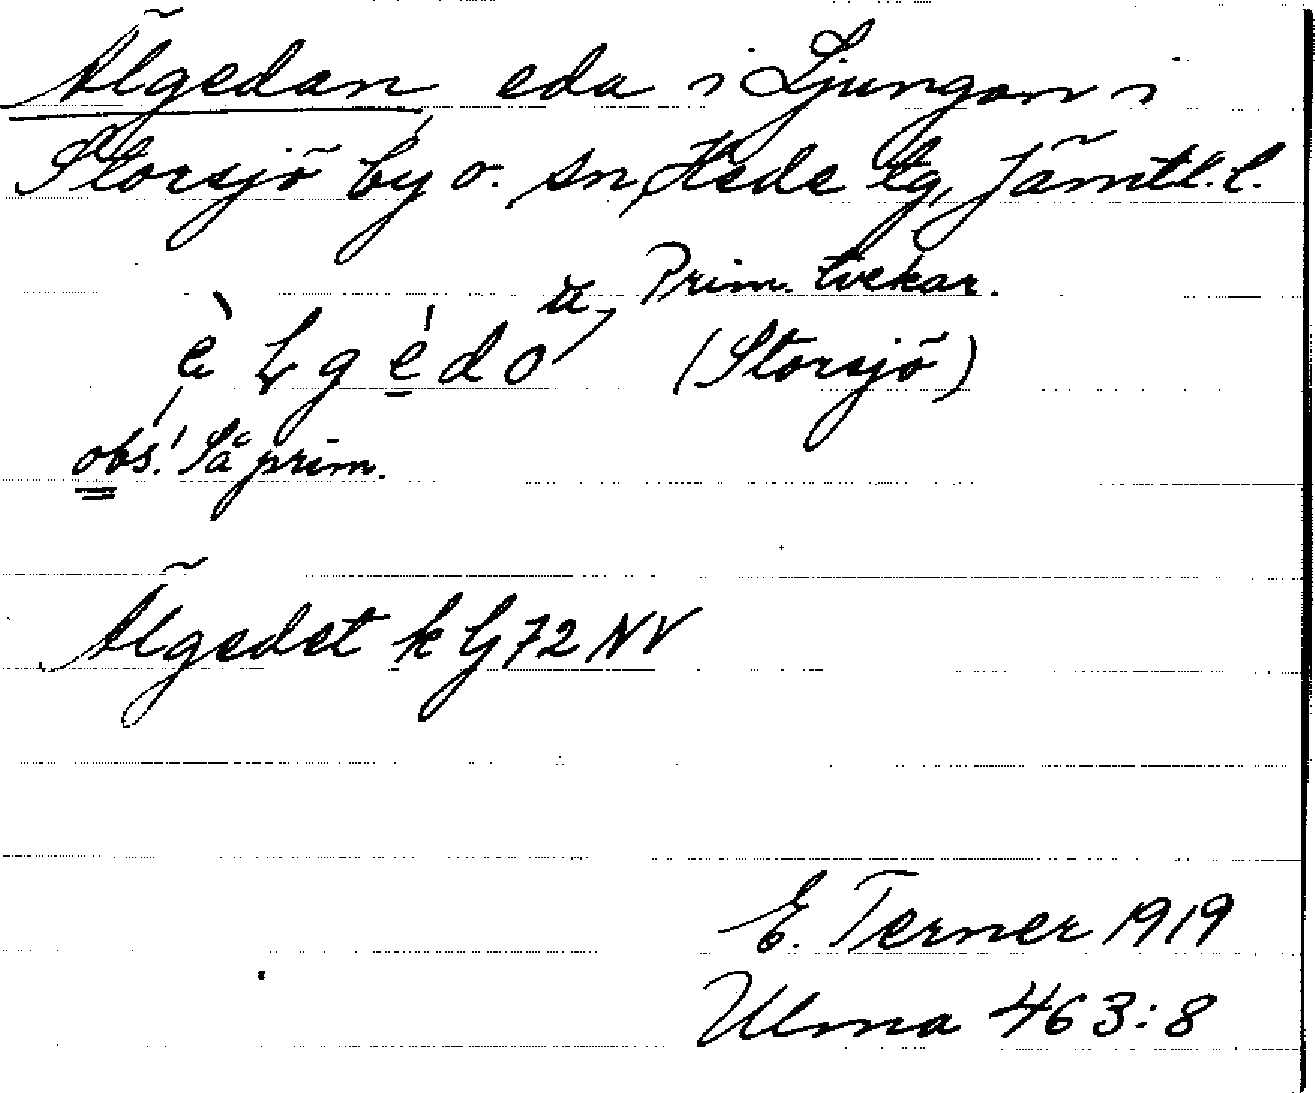 Älgedan eda i Ljungan i
Storsjö by o. sn, Hede tg, Jämtl. l.
Prim. tvekar.
(Storsjö)
obs! Så prim.
Älgedet k Lj 72 NV
E. Terner 1919
Ulma 463:8